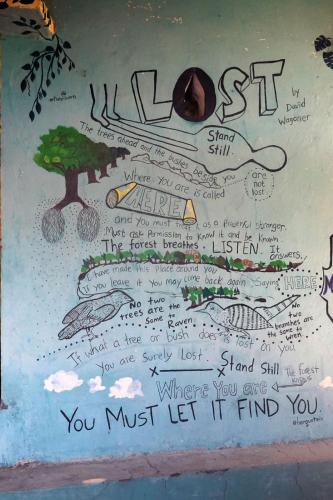 LOST
by
David
Wagoner
Stand
Still.
The trees ahead and the bushes beside you
are
not
lost.
Where you are is called
HERE
and you must treat it as a powerful stranger.
Must ask Permission to know it and be known.
The forest breathes. LISTEN. It
answers.
have made this place around you
If you leave it you may come back again Saying HERE
No two
trees are the
Same to
Raven.
No
two
branches are
the same to
Wren.
If what a tree or bush does is lost on you
You are Surely Lost.
Stand Still
The forest
knows
Where You are
YOU MUST LET IT FIND YOU.